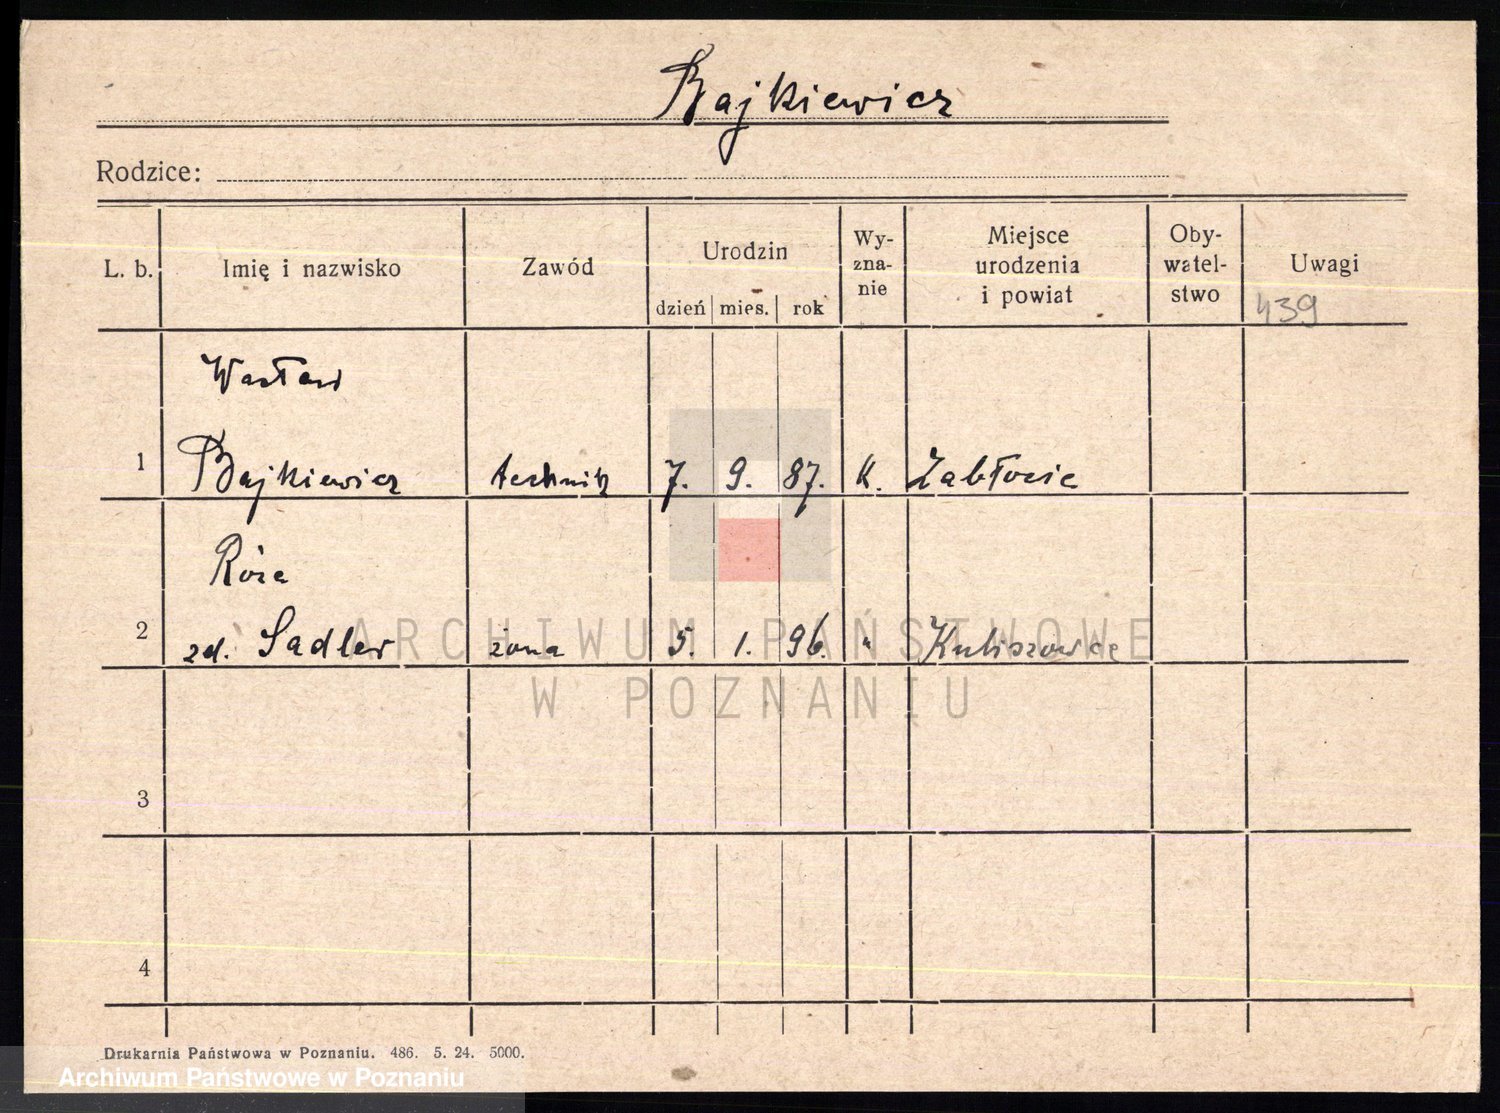 Bajkiewicz
Rodzice:
L. b. Imię i nazwisko Zawód Urodzin dzień mies. rok Wy-zna-nie Miejsce urodzenia i powiat Oby-watel-stwo Uwagi
439
Wacław
1 Bajkiewicz technik 7. 9. 87. K. Zabłocie
Róża
2 zd. Sadler żona 5. 1. 96. "
3
4
ARCHIWUM PAŃSTWOWE
W POZNANIU
Drukarnia Państwowa w Poznaniu. 486. 5. 24. 5000.
Archiwum Państwowe w Poznaniu